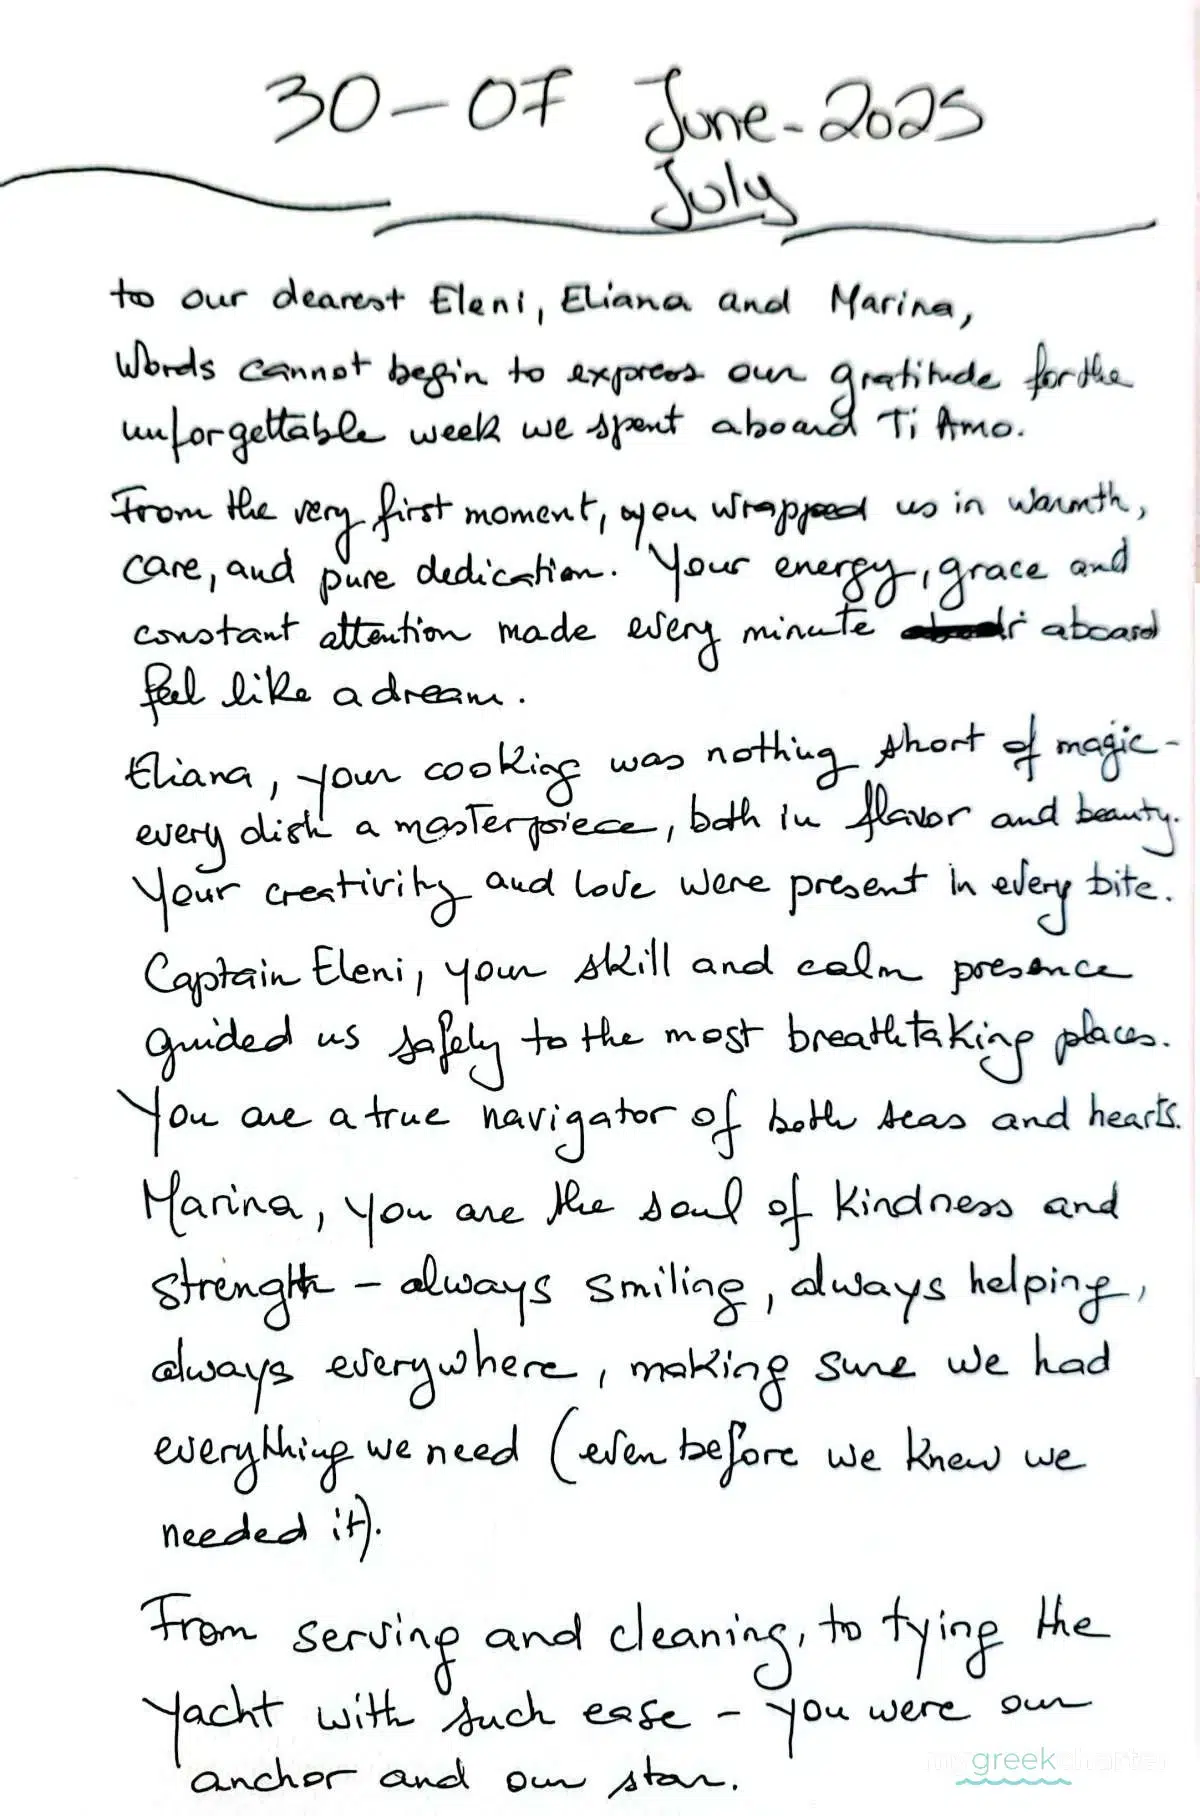 30-07 June-2025
July
to our dearest Eleni, Eliana and Marina,
Words cannot begin to express our gratitude for the
unforgettable week we spent aboard Ti Amo.
From the very first moment, you wrapped us in warmth,
care, and pure dedication. Your energy, grace and
constant attention made every minute aboard
feel like a dream.
Eliana, your cooking was nothing short of magic-
every dish a masterpiece, both in flavor and beauty.
Your creativity and love were present in every bite.
Captain Eleni, your skill and calm presence
guided us safely to the most breathtaking places.
You are a true navigator of both seas and hearts.
Marina, you are the soul of kindness and
strength - always smiling, always helping,
always everywhere, making sure we had
everything we need (even before we knew we
needed it).
From serving and cleaning, to tying the
yacht with such ease - you were our
anchor and our star.
mygreekcharter